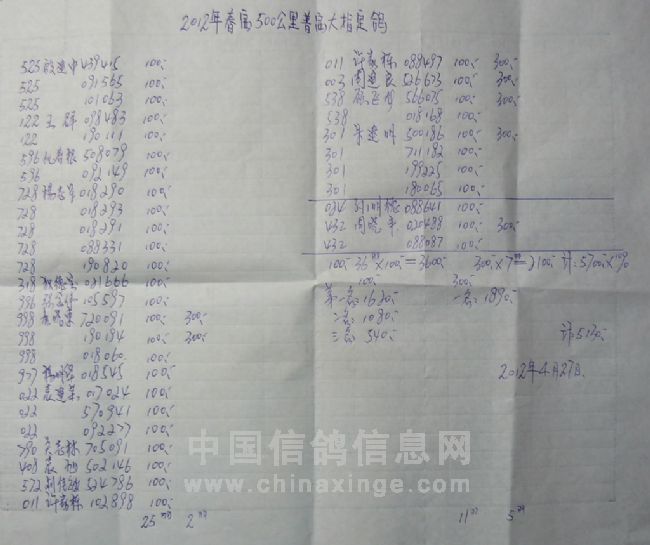 2012年春富500公里普富大指定鸽
525 殷建中 439415 100.-
525 091565 100.-
525 101063 100.-
122 王群 098483 100.-
122 190111 100.-
596 508079 100.-
596 092149 100.-
728 018290 100.-
728 018293 100.-
728 018291 100.-
728 088331 100.-
728 190820 100.-
318 021666 100.-
996 105597 100.-
998 720091 100.- 300.-
998 190194 100.- 300.-
998 018060 100.-
977 018545 100.-
022 袁建荣 017024 100.-
022 570941 100.-
022 092277 100.-
790 705091 100.-
408 502146 100.-
572 524786 100.-
011 许家栋 102898 100.-
25 2
011 许家栋 089497 100.- 300.-
003 周建良 526673 100.- 300.-
538 566075 100.- 300.-
538 018168 100.-
301 朱建明 500186 100.- 300.-
301 711182 100.-
301 199225 100.-
301 180065 100.-
024 088641 100.-
432 周蓉平 020488 100.- 300.-
432 088087 100.-
100.- 36羽×100.-=3600.- 300.-×7羽=2100.- 计:5700.-×10%
100.- 300.-
第一名:1620.- 一名:1890.-
二名:1080.-
三名:540.- 计:5130.-
2012年4月27日.
11羽 5羽
中国信鸽信息网
www.chinaxinge.com